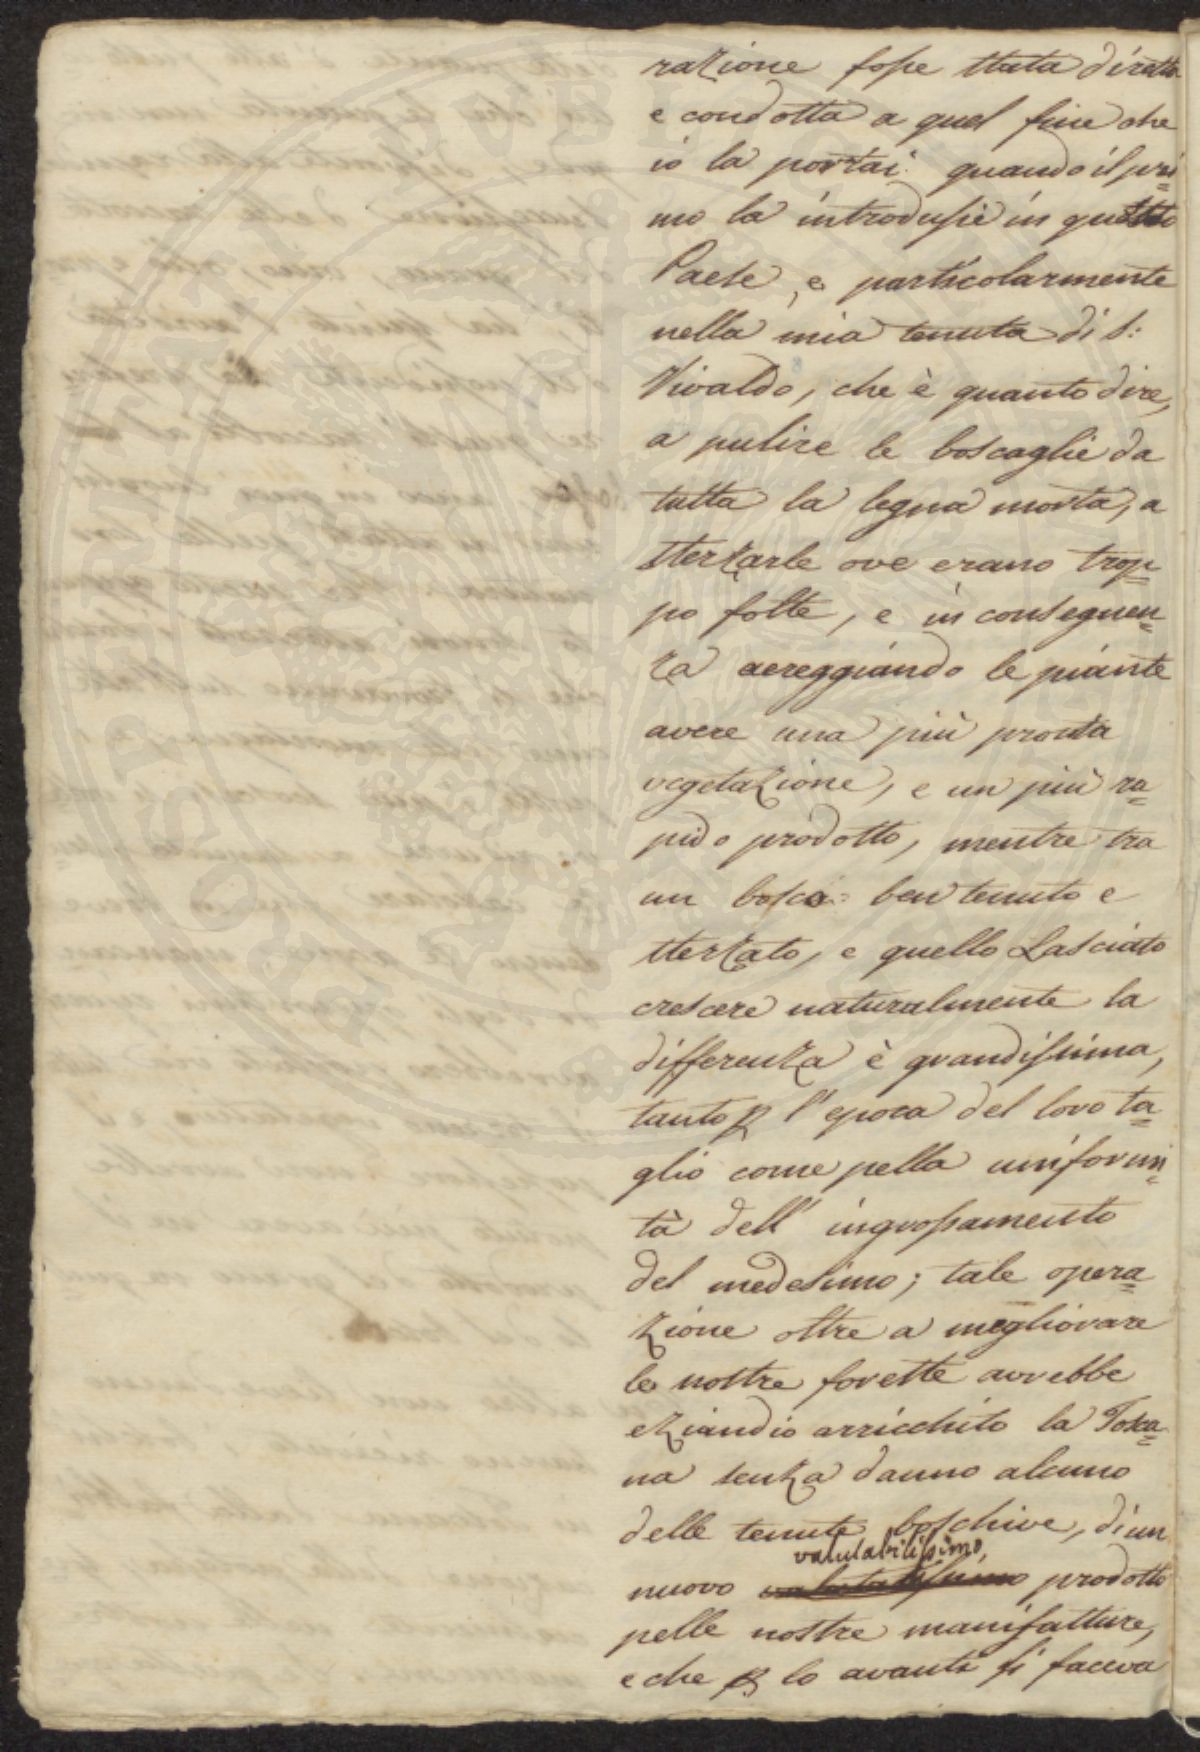 razione fosse stata diretta
e condotta a quel fine che
io la portai quando il pri=
mo la introdussi in questo
Paese, e particolarmente
nella mia tenuta di S:
Vivaldo, che è quanto dire,
a pulire le boscaglie da
tutta la legna morta, a
sterzarle ove erano trop=
po folte, e in conseguen=
za aereggiando le piante
avere una più pronta
vegetazione, e un più ra=
pido prodotto, mentre tra
un bosco ben tenuto e
sterzato, e quello Lasciato
crescere naturalmente la
differenza è grandissima,
tanto p l'epoca del loro ta=
glio come pella uniformi=
tà dell' ingrossamento
del medesimo; tale opera=
zione oltre a megliorare
le nostre foreste avrebbe
eziandio arricchito la Tosca=
na senza danno alcuno
delle tenute boschive, di un
valutabilissimo,
nuovo prodotto
pelle nostre manifatture,
e che p lo avanti si faceva